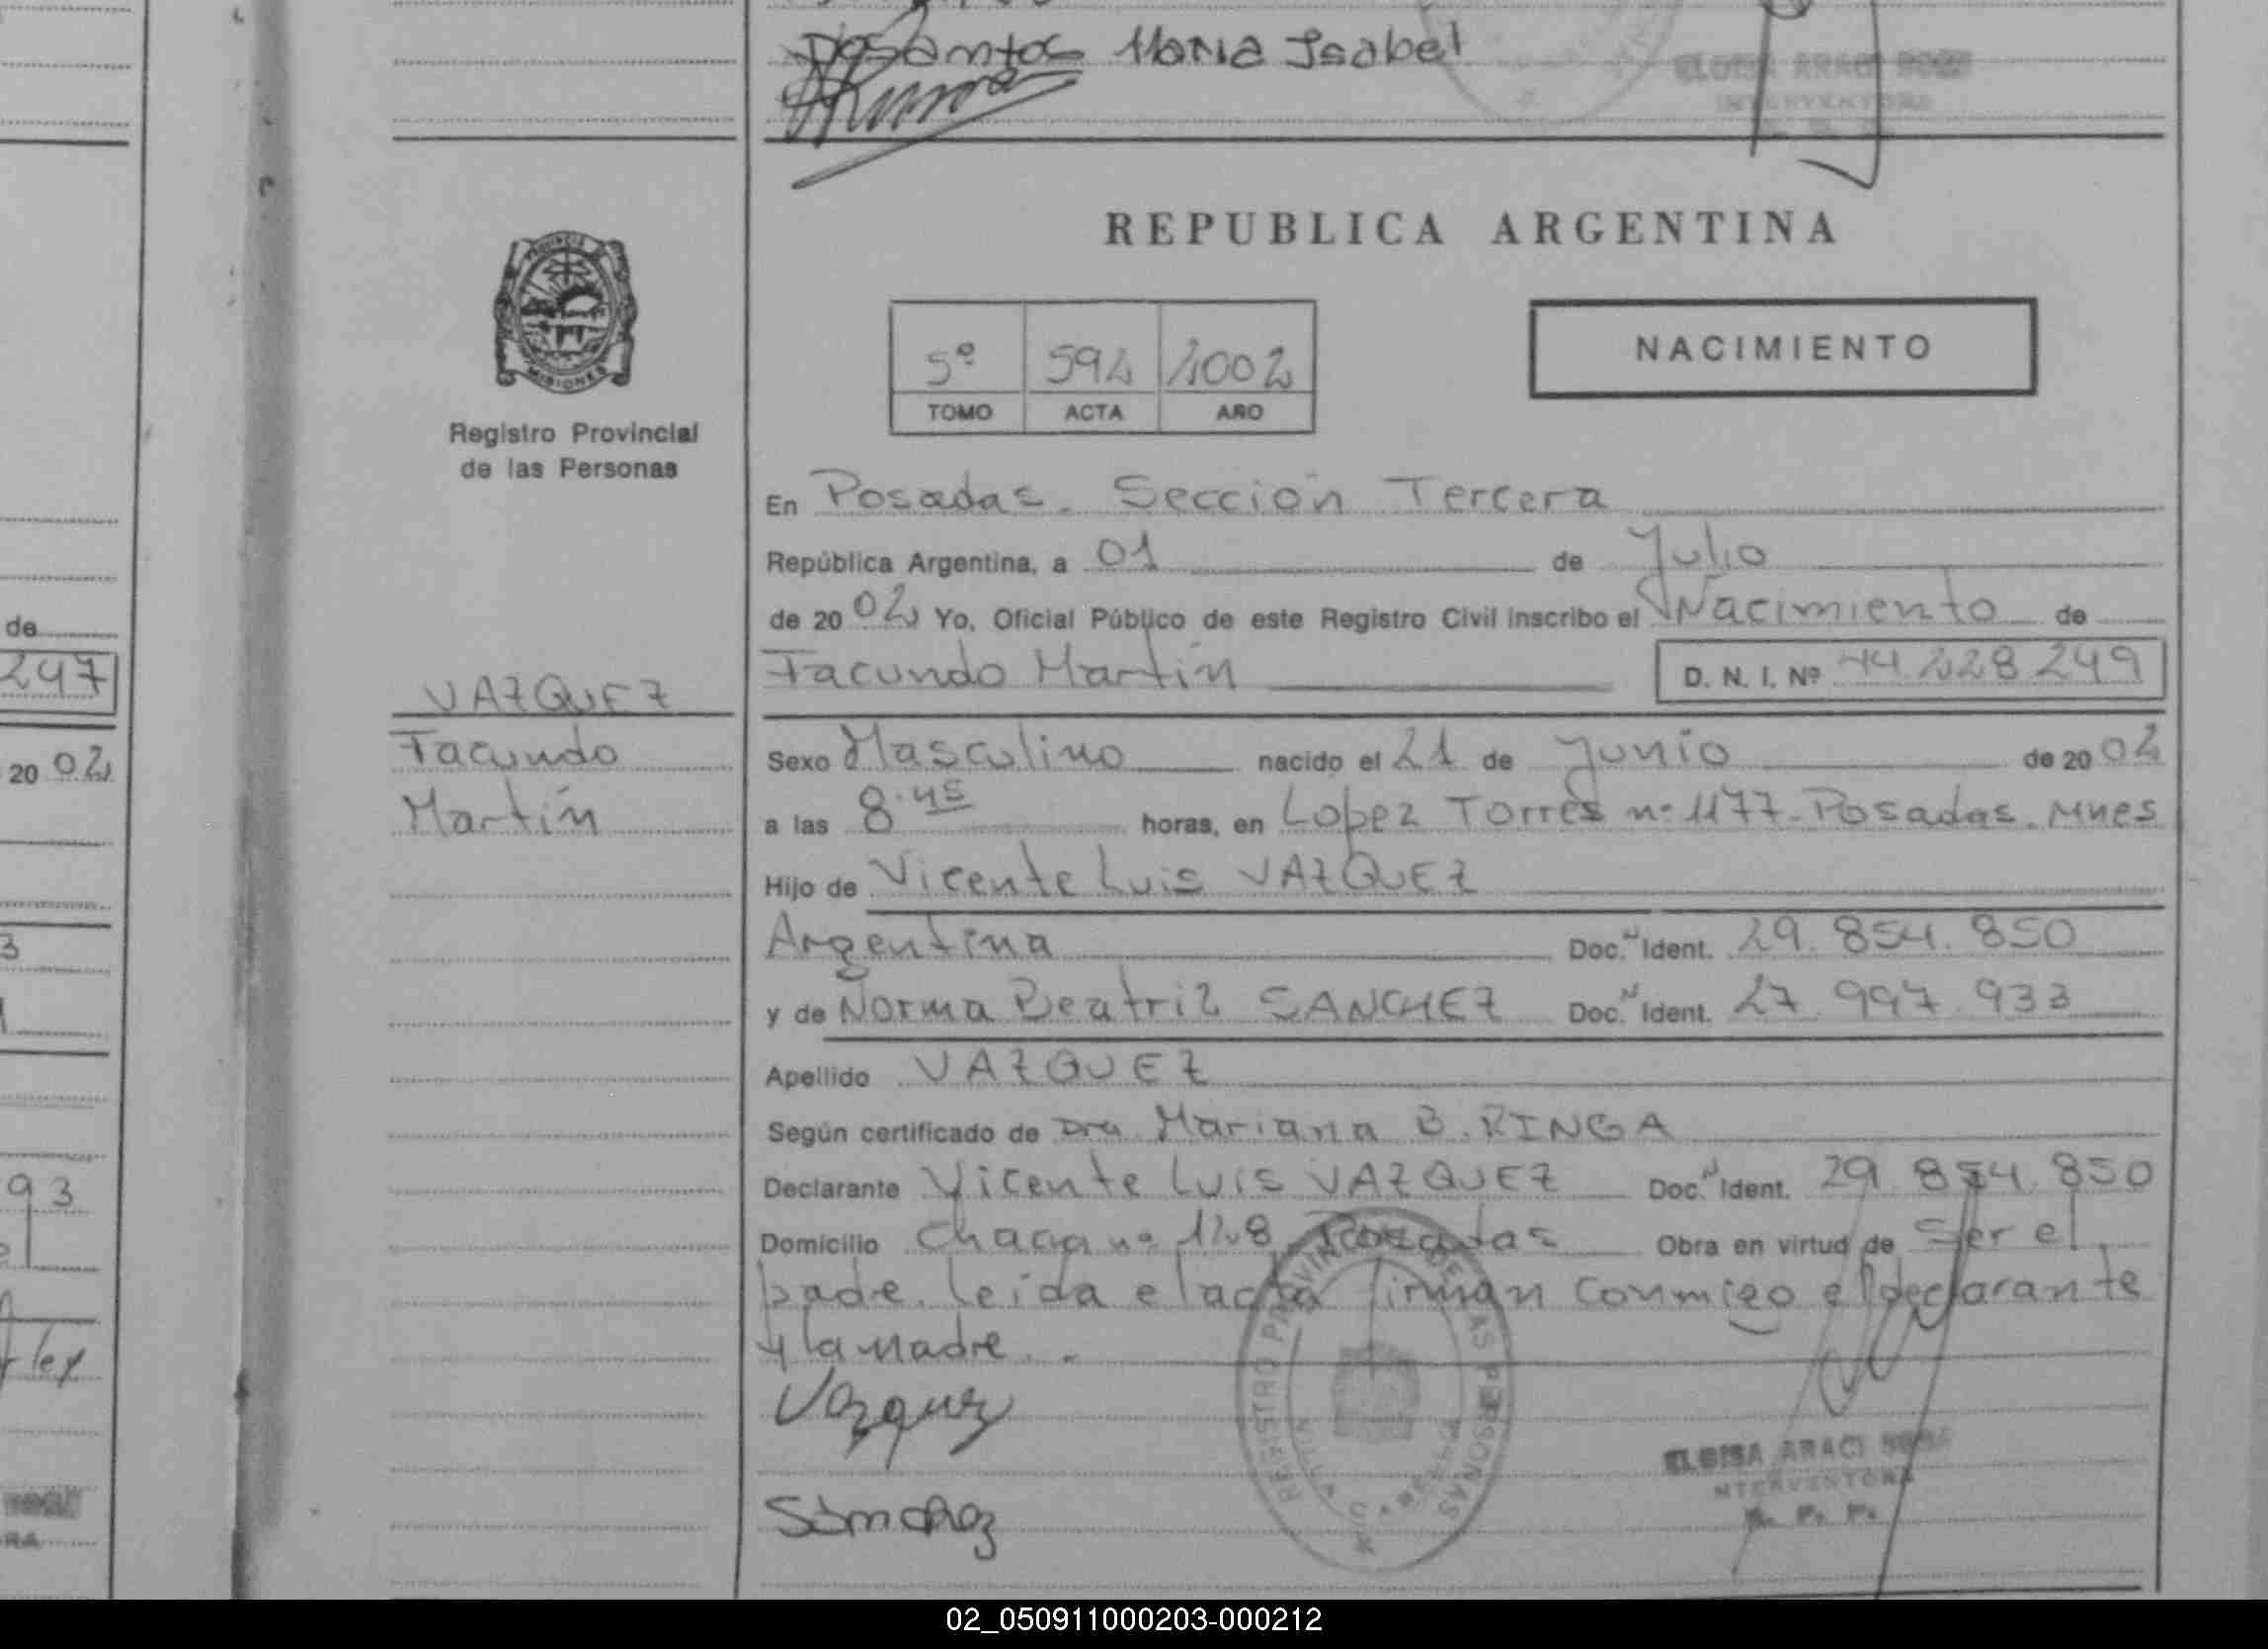 Dosantos Maria Isabel
ELOISA ARACI SOSA
INTERVENTORA
PROVINCIA
MISIONES
Registro Provincial
de las Personas
REPUBLICA ARGENTINA
5º 592 2002
TOMO ACTA AÑO
NACIMIENTO
En Posadas. Sección Tercera
República Argentina, a 01 de Julio
de 20 02 Yo, Oficial Público de este Registro Civil inscribo el Nacimiento de
Facundo Martín D. N. I. Nº 44.228.249
VAZQUEZ
Facundo
Martín
Sexo Masculino nacido el 21 de Junio de 20 02
a las 8.45 horas, en Lopez Torres nº 1177. Posadas. Mnes
Hijo de Vicente Luis VAZQUEZ
Argentina Doc. Ident. 29.854.850
y de Norma Beatriz SANCHEZ Doc. Ident. 27.997.933
Apellido VAZQUEZ
Según certificado de Dra Mariana B. RINGA
Declarante Vicente Luis VAZQUEZ Doc. Ident. 29.854.850
Domicilio Chacra nº 128 Posadas Obra en virtud de Ser el
padre. leida el acta firman conmigo el declarante
y la madre. -
Vazquez
Sánchez
REGISTRO PROVINCIAL DE LAS PERSONAS
ELOISA ARACI SOSA
INTERVENTORA
R. P. P.
de
247
20 02
3
93
el
02_050911000203-000212